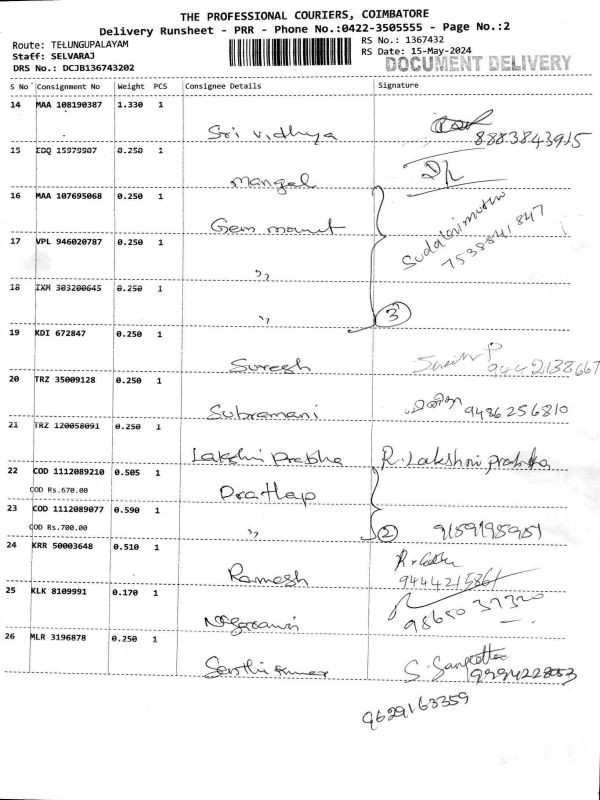 THE PROFESSIONAL COURIERS, COIMBATORE
Delivery Runsheet - PRR - Phone No.:0422-3505555 - Page No.:2
Route: TELUNGUPALAYAM
RS No.: 1367432
Staff: SELVARAJ
RS Date: 15-May-2024
DRS No.: DCJB136743202
DOCUMENT DELIVERY
S No Consignment No Weight PCS Consignee Details Signature
14 MAA 108190387 1.330 1
Sri Vidhya 8883843915
15 EDQ 15979907 0.250 1
Mangal
16 MAA 107695068 0.250 1
Gem mount
Sudalaimuthu
7538841847
17 VPL 946020787 0.250 1
"
18 IXM 303200645 0.250 1
" 3
19 KDI 672847 0.250 1
Suresh 9442138667
20 TRZ 35009128 0.250 1
Subramani 9486256810
21 TRZ 120058091 0.250 1
Lakshmi Prabha R. Lakshmi prabha
22 COD 1112089210 0.505 1
COD Rs.670.00
Prathap
23 COD 1112089077 0.590 1
COD Rs.700.00
" 2 9159195951
24 KRR 50003648 0.510 1
Ramesh 9444215861
25 KLK 8109991 0.170 1
9865037320
26 MLR 3196878 0.250 1
Senthil kumar S. Sangeetha
9629163359